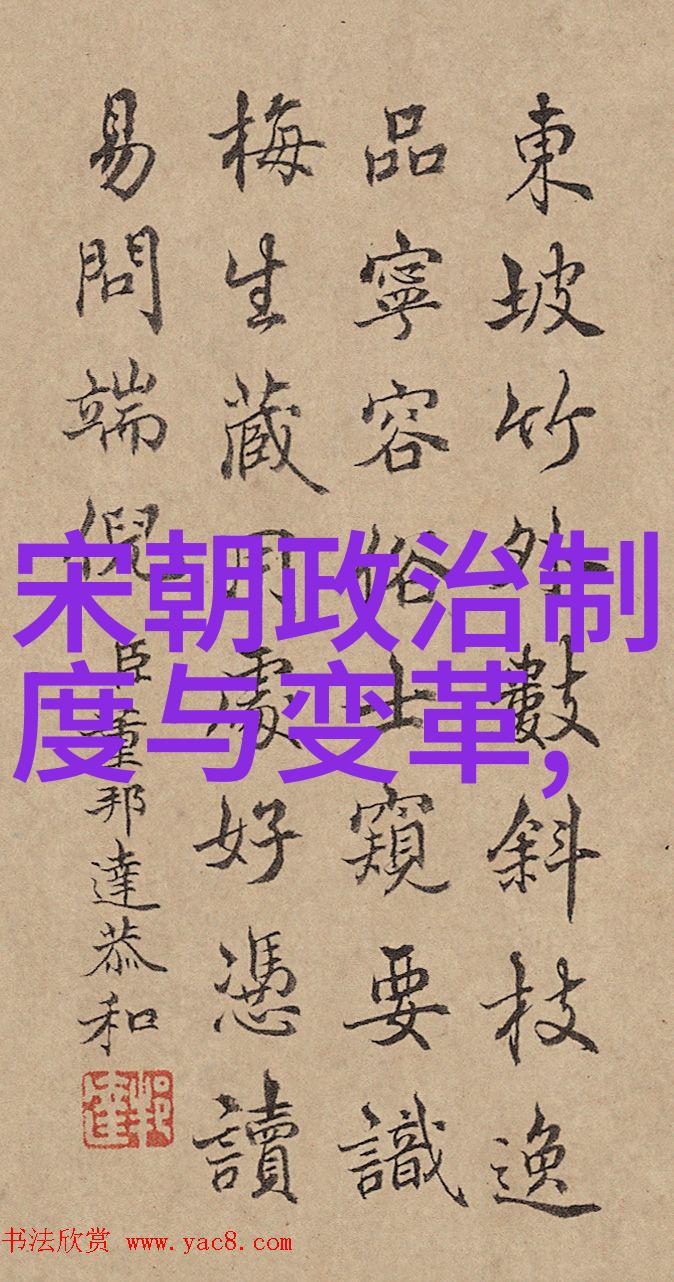 東坡竹外數斜枝逸
品寧容俗士窺要識
梅生藏用處好憑讀
易問端倪
臣董邦達恭和
宋朝政治制
度与变革,
书法欣赏 www.yac8.com